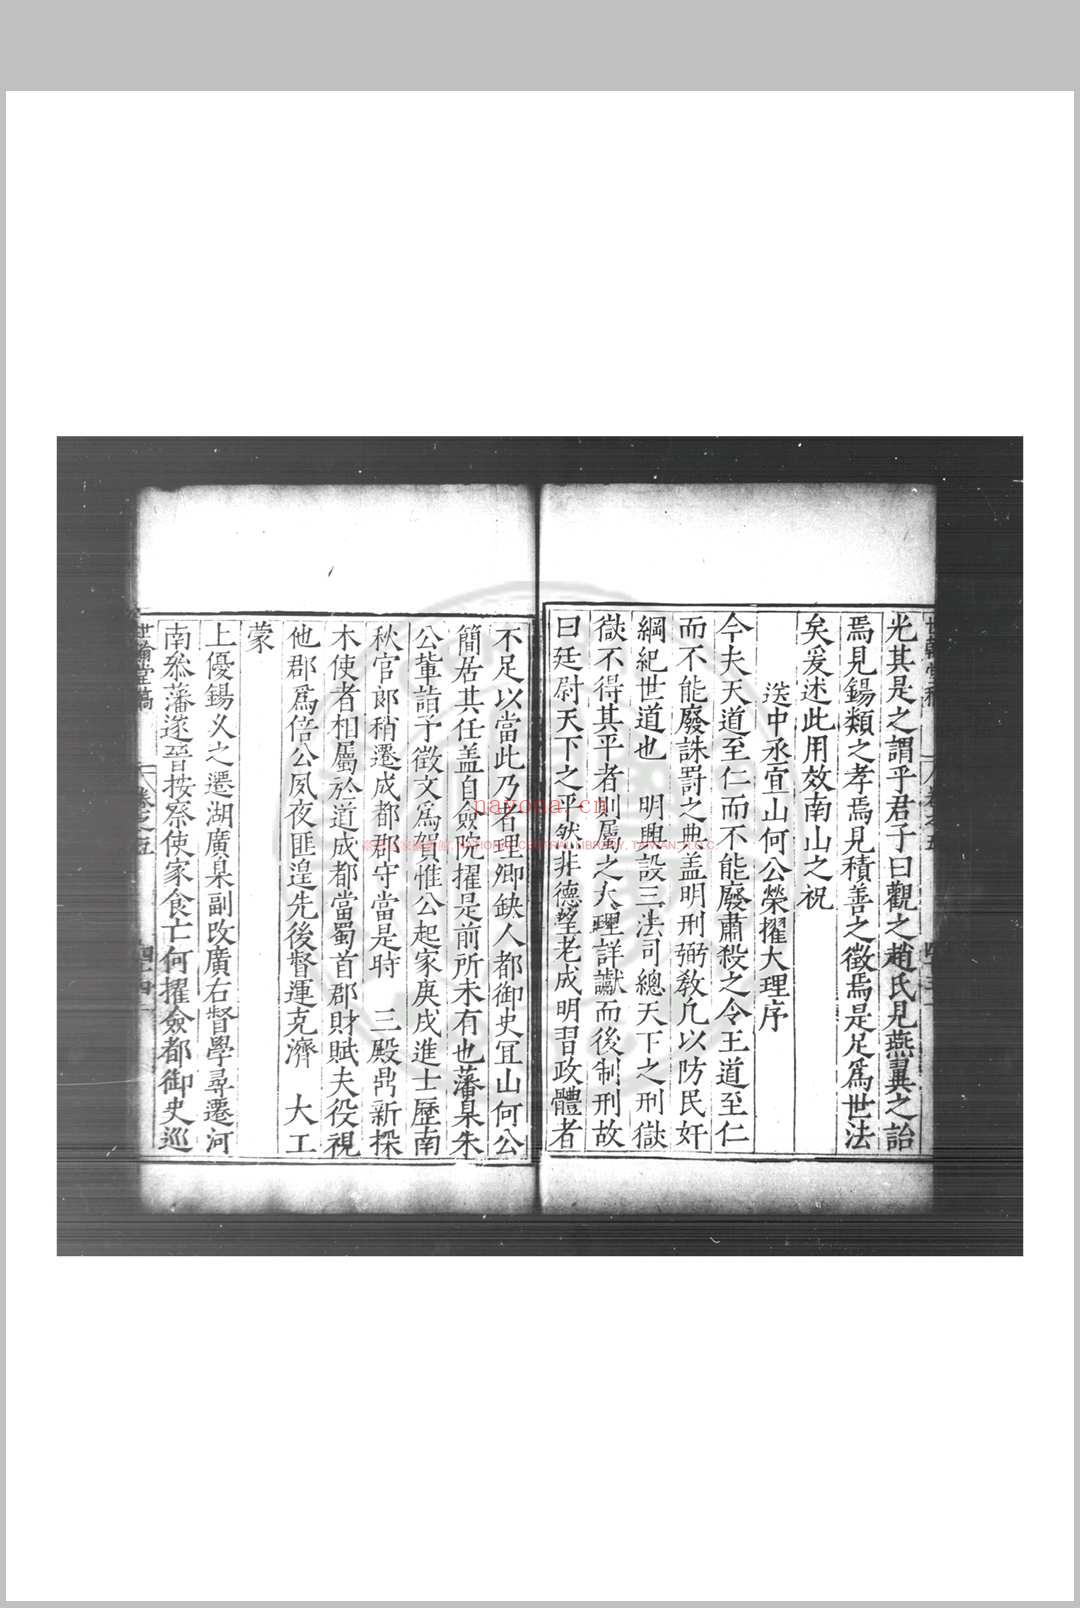 光其是之謂乎君子曰觀之趙氏見燕翼之詒
焉見錫類之孝焉見積善之徵焉是足爲世法
矣爰述此用效南山之祝
送中丞宜山何公榮擢大理序
今夫天道至仁而不能廢肅殺之令王道至仁
而不能廢誅罰之典盖明刑弼敎凢以防民奸
綱紀世道也 明興設三法司總天下之刑獄
獄不得其平者則屬之大理詳讞而後制刑故
曰廷尉天下之平然非德望老成明習政體者
不足以當此乃者理卿缺人都御史冝山何公
簡居其任盖自僉院擢是前所未有也藩臬朱
公軰詣予徵文爲賀惟公起家庚戌進士歷南
秋官郎稍遷成都郡守當是時 三殿鼎新採
木使者相屬於道成都當蜀首郡財賦夫役視
他郡爲倍公夙夜匪遑先後督運克濟 大工
蒙
上優錫乂之遷湖廣臬副攺廣右督學尋遷河
南叅藩遂晉按察使家食亡何擢僉都御史巡
世翰堂稿
卷之五
四十四
nayona.cn
NATIONAL CENTRAL LIBRARY, TAIWAN, R.O.C.